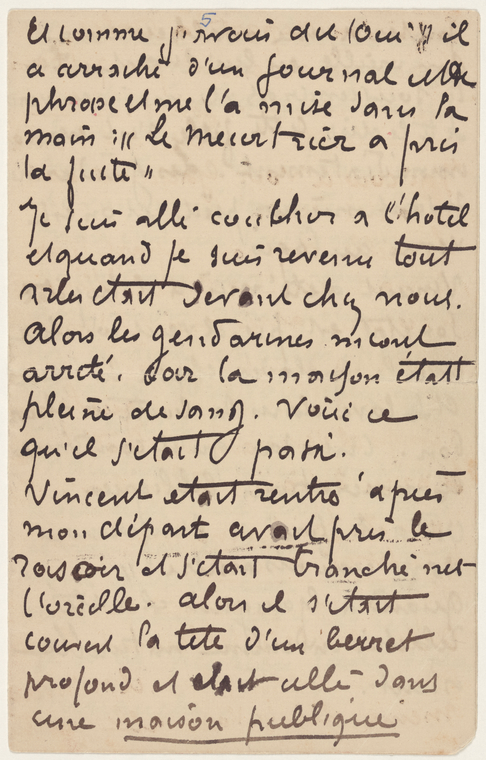 5
Et comme j'avais dit "Oui" il
a arraché d'un journal cette
phrase et me l'a mise dans la
main : "Le meurtrier a pris
la fuite"
Je suis allé coucher a l'hotel
et quand je suis revenu tout
Arles était devant chez nous.
Alors les gendarmes m'ont
arrêté. Car la maison était
pleine de sang. Voici ce
qu'il s'etait passé.
Vincent etait rentré après
mon départ avait pris le
rasoir et s'etait tranché net
l'oreille. Alors il s'etait
couvert la tete d'un berret
profond et etait allé dans
une maison publique